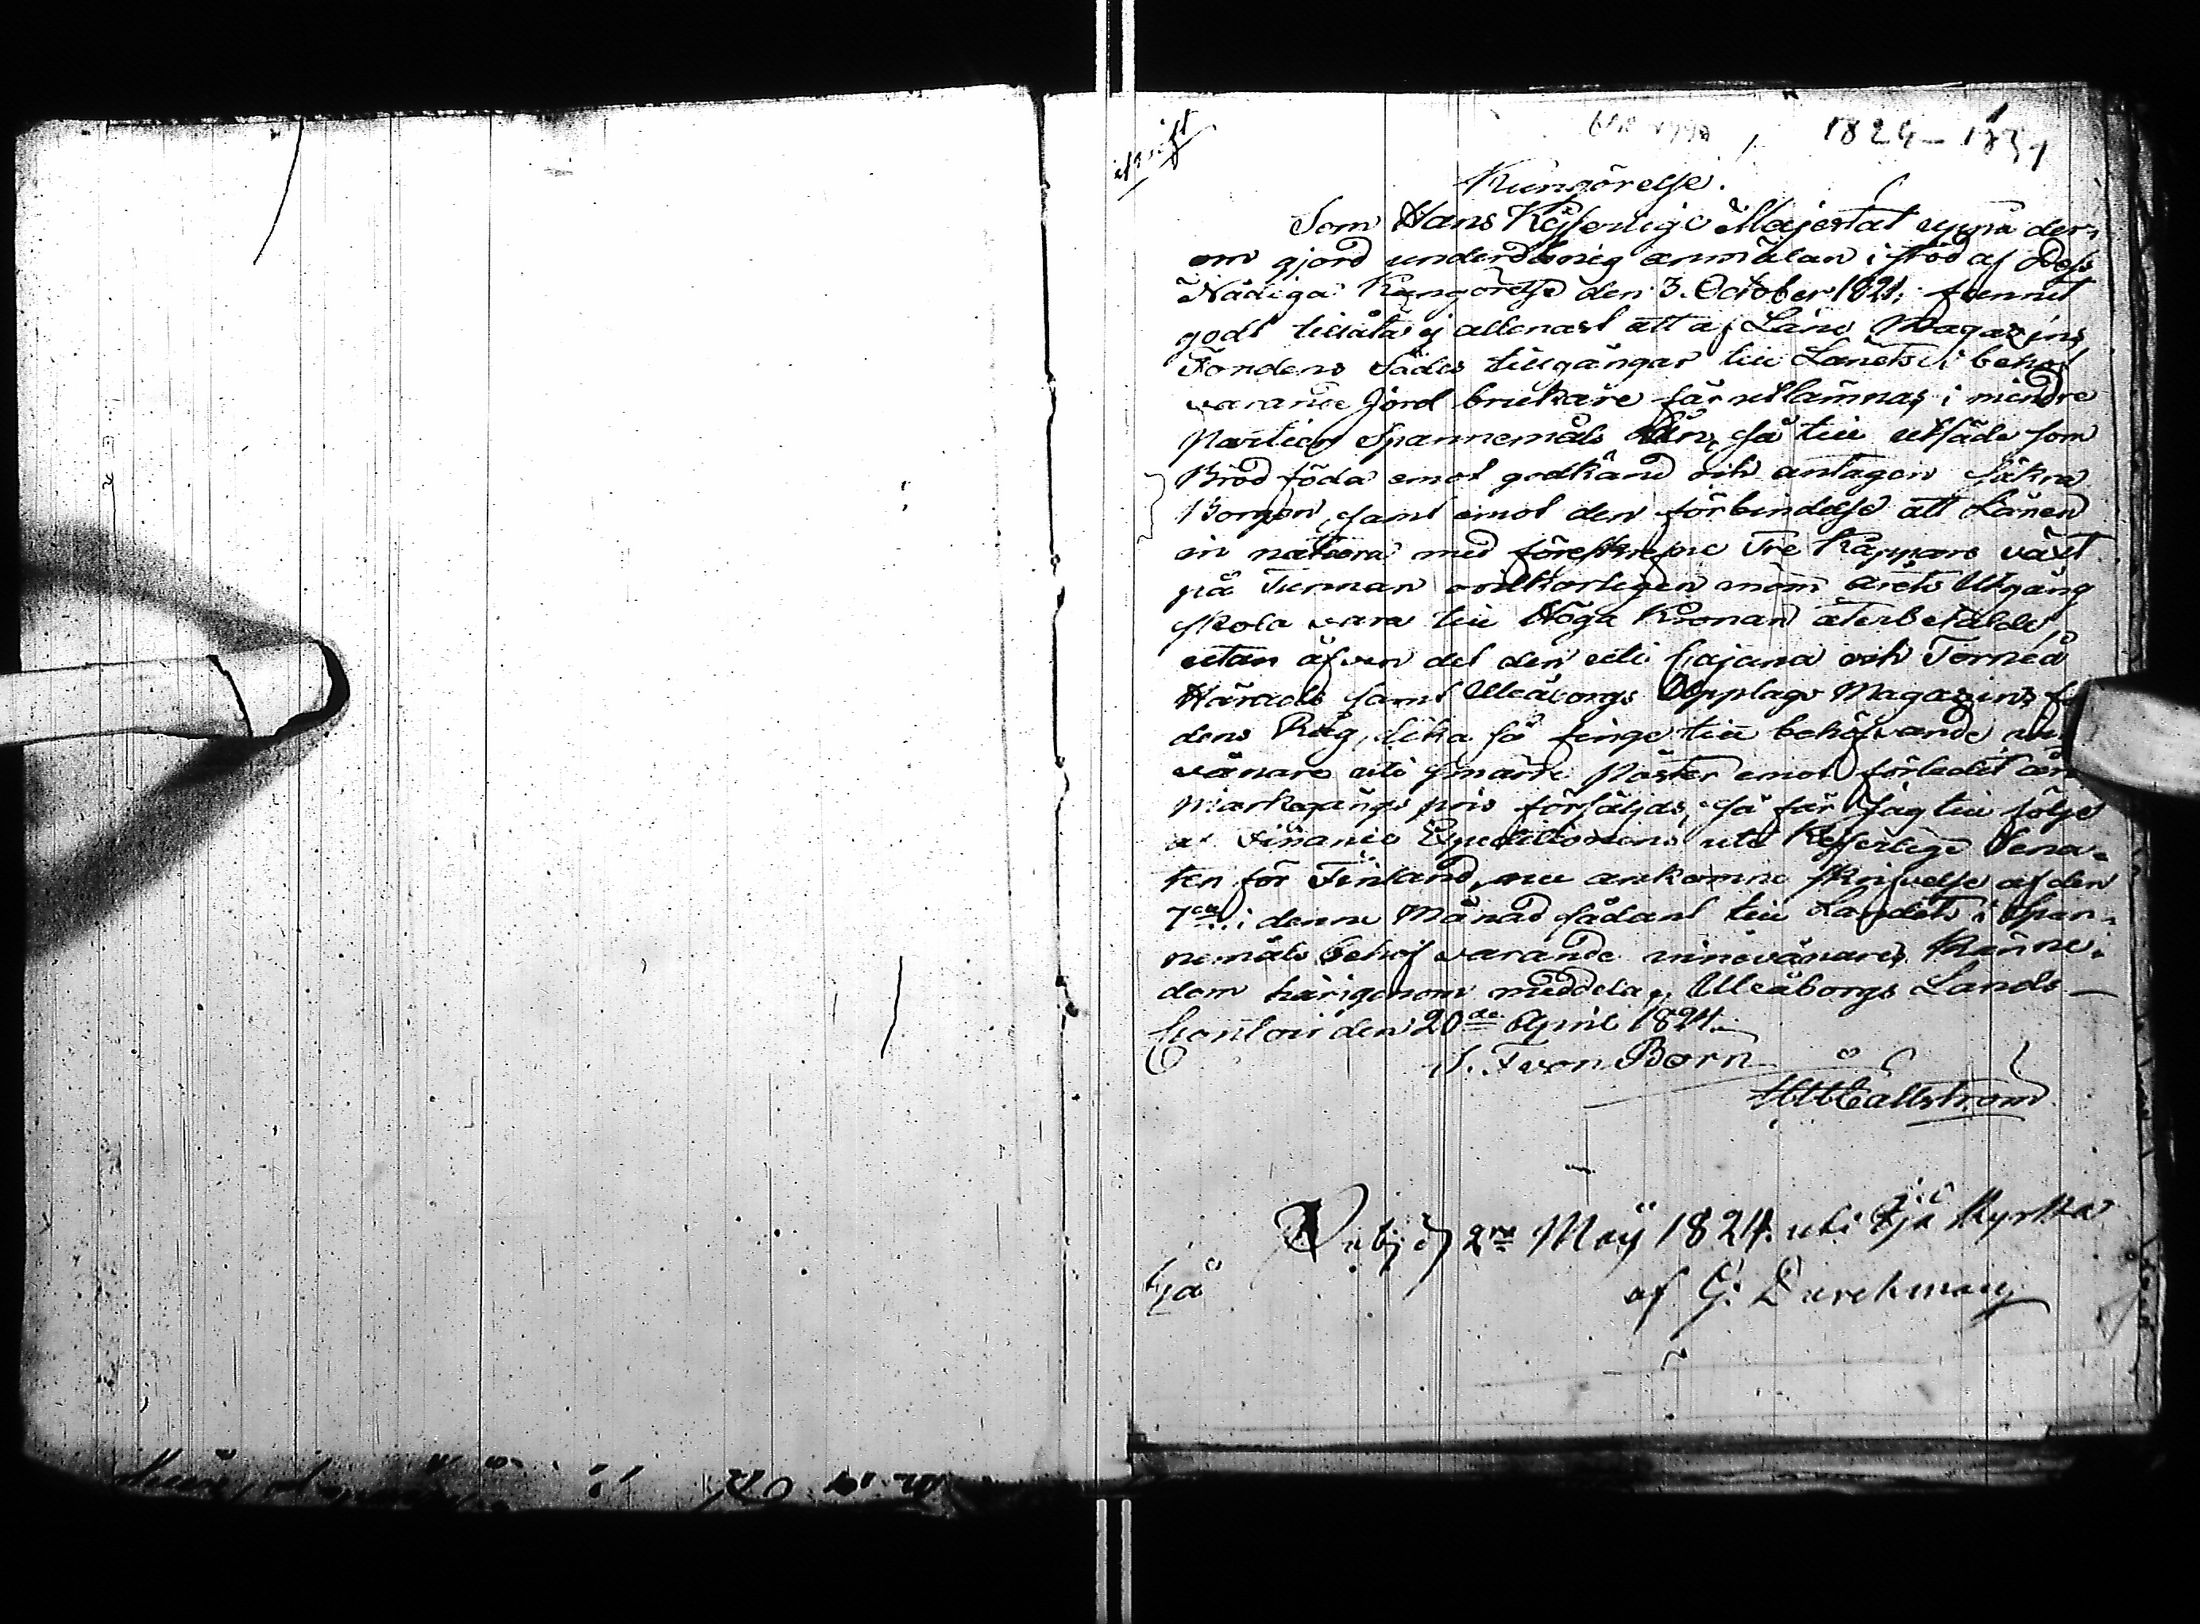 1824–1831
Kungörelse.
Som Hans Kejserlige Majestät uppå der-
om gjord underdånig anmälan i stöd af Dess
Nådiga Kungörelse den 3. October 1821, funnit
godt tillåta ej allenast att af Läns Magazins
Fondens Sädes tillgångar till Länets i behof
varande Jord brukare får utlämnas i mindre
Partier Spannemåls Lån, så till utsäde som
Bröd föda emot godkänd och antagen säkra
Borgen, samt emot den förbindelse att Lånen
in natura med föreskrefne Tre Kappars växt
på Tunnan ovilkorligen inom årets Utgång
skola vara till Höga Kronan återbetalde,
utan äfven det den uti Cajana och Torneå
Härads samt Uleåborgs Upplags Magazins
dens Råg, lika så finge till behöfvande
vånare uti smärre Poster emot förledit års
Markegångs pris försäljas, så får jag till följe
af Finance Expeditionens uti Kejserlige Sena-
ten för Finland, nu ankomne skrifvelse af den
7de i denne Månad sådant till Landets i Span-
nemåls behof varande innevånares Känne-
dom härigenom meddela. Uleåborgs Lands-
Contoir den 20de April 1824.
S. F von Born
Hällström
2re Maÿ 1824. uti Ijå Kyrka
Ijå
af G: Durchman